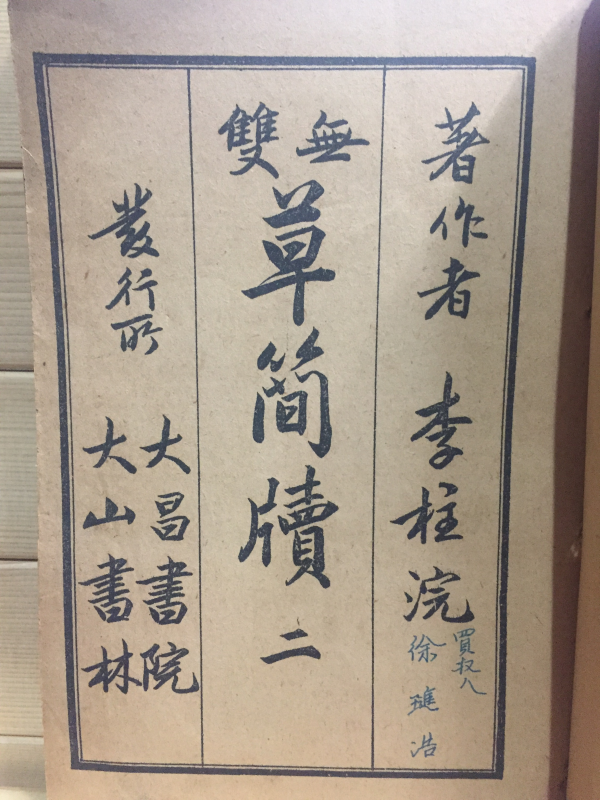 著作者 李柱浣
買収人
徐璡浩
無雙
草簡牘 二
發行所
大昌書院
大山書林